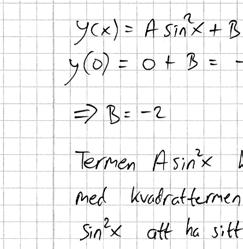 y(x) = A sin²x + B
y(0) = 0 + B = -
⇒ B = -2
Termen A sin²x
med kvadrattermen
sin²x att ha sitt